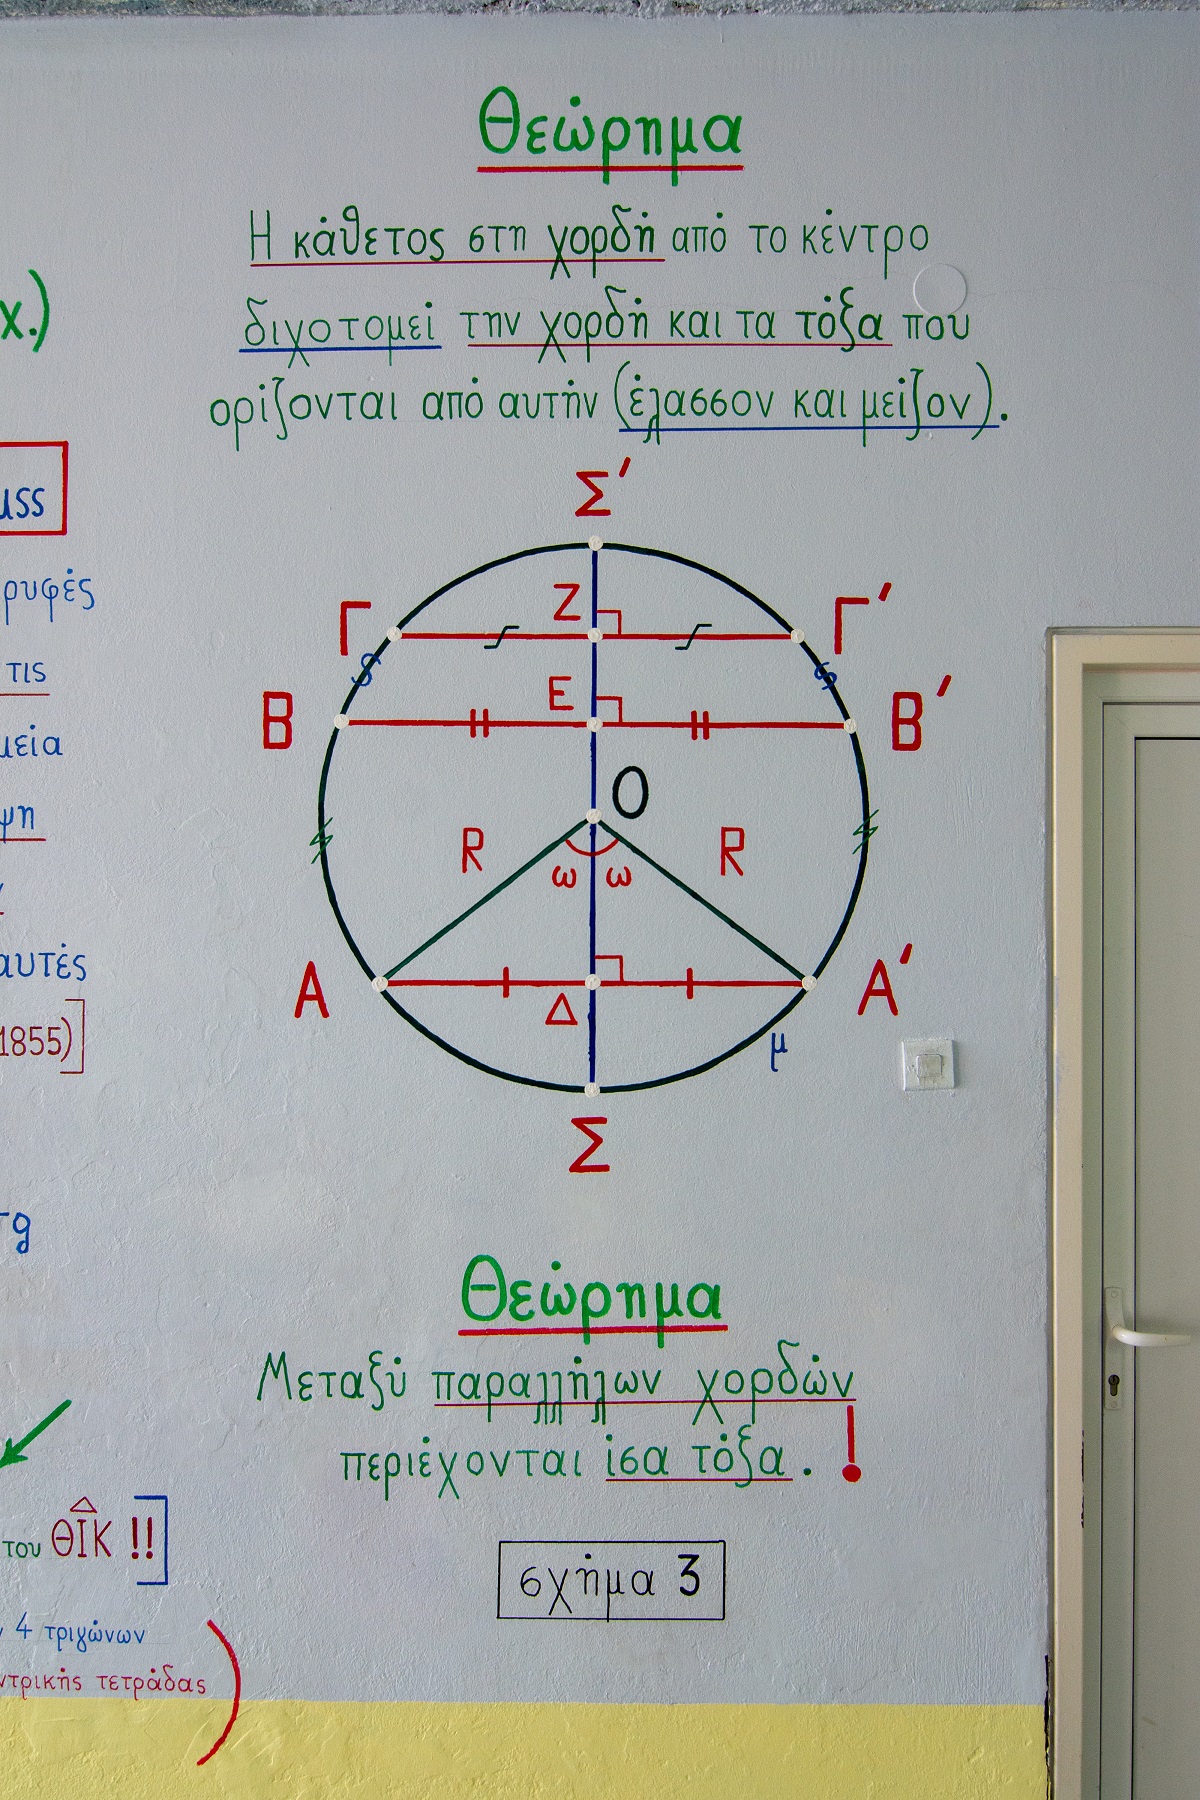 Θεώρημα
Η κάθετος στη χορδή από το κέντρο
διχοτομεί την χορδή και τα τόξα που
ορίζονται από αυτήν (έλασσον και μείζον).
Σ′
Ζ
Γ Γ′
Ε
Β Β′
Ο
R R
ω ω
Α Α′
Δ
μ
Σ
Θεώρημα
Μεταξύ παραλλήλων χορδών
περιέχονται ίσα τόξα. !
σχήμα 3
χ.)
uss
ρυφές
τις
μεία
ψη
αυτές
1855)]
rg
του ΘΙΚ !!]
4 τριγώνων
ντρικής τετράδας)